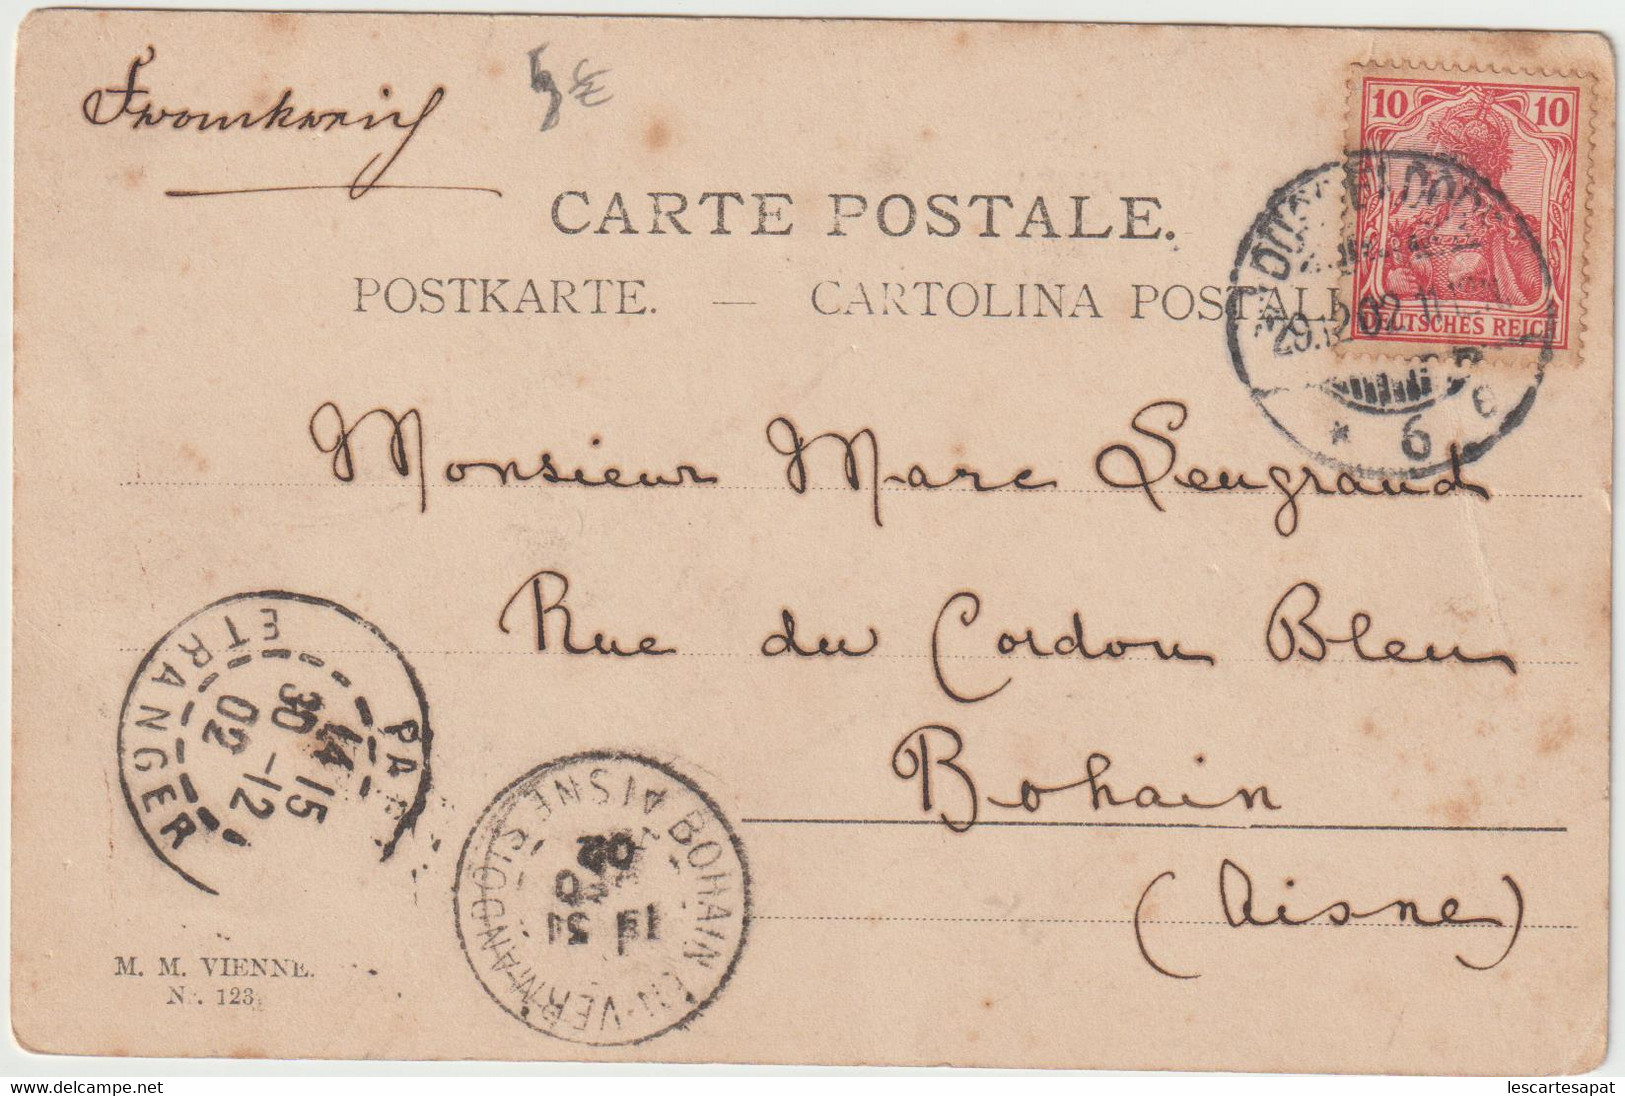 Frankreich
5 €
CARTE POSTALE.
POSTKARTE. — CARTOLINA POSTALE
10 10
DEUTSCHES REICH
DÜSSELDORF
29.12.02. 11
* 6 e
Monsieur Marc Leugrand
Rue du Cordon Bleu
Bohain
(Aisne)
ETRANGER
14 15
30 -12
02
BOHAIN EN-VERMANDOIS
AISNE
02
M. M. VIENNE.
Nr. 123.
delcampe.net
lescartesapat